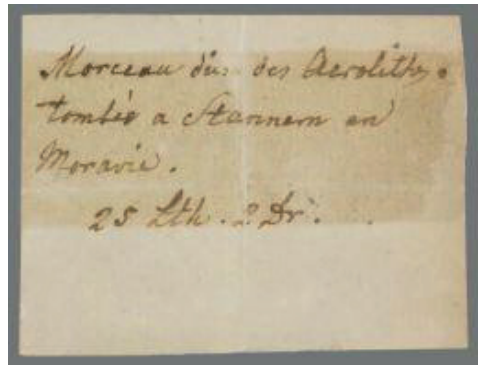 Morceau d'un des Aerolithes
tombés a Stannern en
Moravie.
25 Lth. 2 Dr.